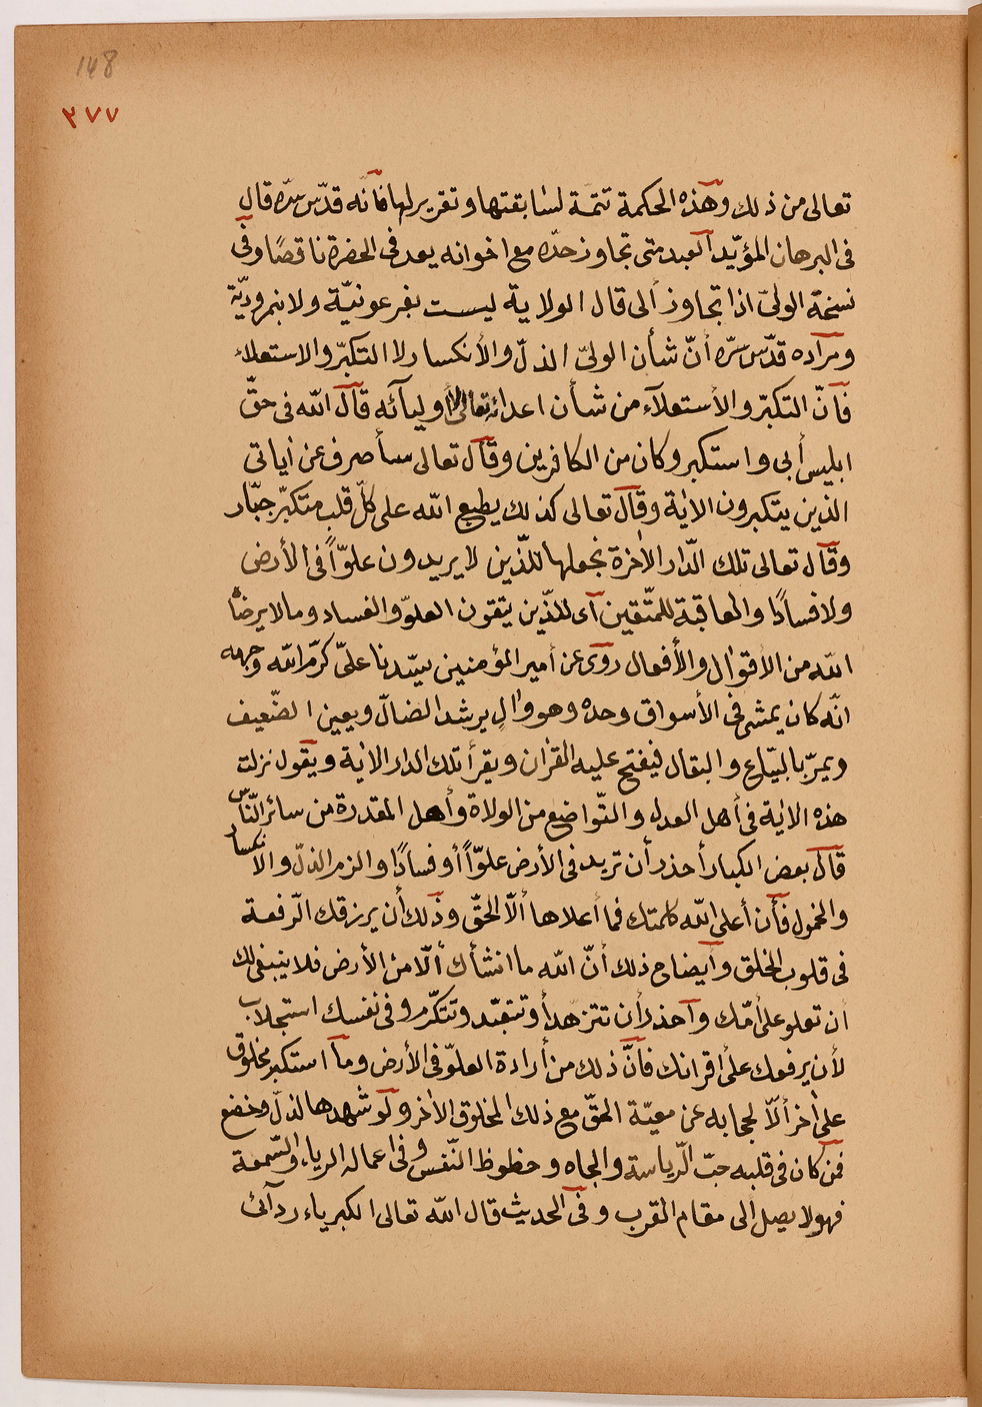 148
٣٧٧
تعالى من ذلك وهذه الحكمة تتمّة لسابقتها وتقرير لها فانّه قدّس سرّه قال
فى البرهان المؤيّد العبد متى تجاوز حدّه مع اخوانه يعد فى الحضرة ناقصًا وفى
نسخة الولىّ اذا تجاوز ألى قال الولاية ليست بفرعونيّة ولا بنمروديّة
ومراده قدّس سرّه أنّ شأن الولىّ الذلّ والأنكسار لا التكبّر والاستعلاء
فأنّ التكبّر والأستعلآء من شأن اعدائه تعالى لا أوليآئه قال الله فى حقّ
ابليس أبى واستكبر وكان من الكافرين وقال تعالى سأصرف عن أياتى
الذين يتكبرون الاية وقال تعالى كذلك يطبع الله على كلّ قلب متكبّر جبّار
وقال تعالى تلك الدّار الاخرة نجعلها للّذين لا يريدون علوّاً فى الأرض
ولا فسادًا والعاقبة للمتّقين أى للذّين يتقون العلوّ والفساد وما لا يرضاه
الله من الاقوال والأفعال روى عن أمير المؤمنين سيّدنا علىّ كرّم الله وجهه
انّه كان يمشى فى الأسواق وحده وهو والٍ يرشد الضالّ ويعين الضّعيف
ويمرّ بالبيّاع والبقال فيفتح عليه القران ويقرأ تلك الدار الاية ويقول نزلت
هذه الاية فى أهل العدل والتّواضع من الولاة وأهل المقدرة من سائر النّاس
قال بعض الكبار أحذر أن تريد فى الأرض علوّاً أو فسادًا والزم الذلّ والانكسار
والخمول فأن أعلى الله كلمتك فما أعلاها ألّا الحقّ وذلك أن يرزقك الرّفعة
فى قلوب الخلق وأيضاح ذلك أنّ الله ما انشأك ألّا من الأرض فلا ينبغى لك
ان تعلو على أمّك وأحذر أن تتزهد أو تتعبّد وتتكرّم وفى نفسك استجلاب
لأن يرفعك على أقرانك فأنّ ذلك من أرادة العلوّ فى الأرض وما استكبر مخلوق
على أخر ألّا لحجابه عن معيّة الحقّ مع ذلك المخلوق الأخر ولو شهدها لذلّ وخضع
فمن كان فى قلبه حبّ الرّياسة والجاه وحظوظ النّفس وفى اعماله الرياء والسّمعة
فهو لا يصل ألى مقام القرب وفى الحديث قال الله تعالى الكبرياء ردآئى